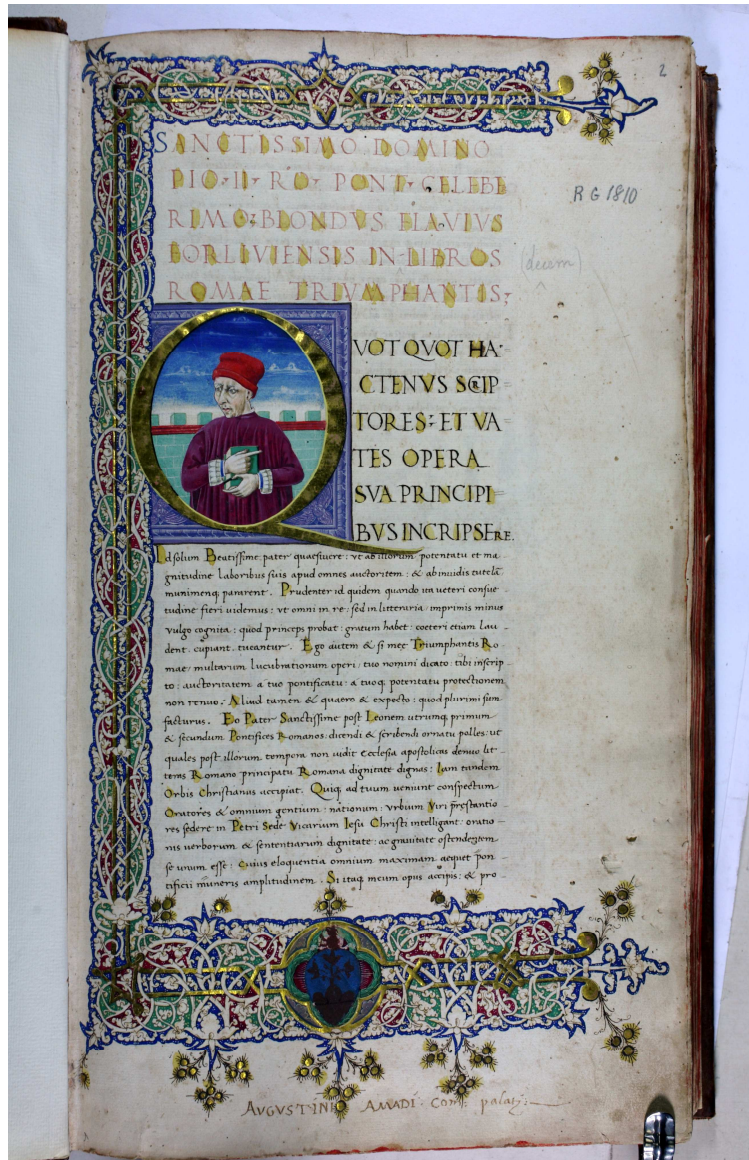 2
SANCTISSIMO DOMINO
PIO·II· RO· PONT· CELEBE
RIMO: BLONDVS FLAVIVS
FORLIVIENSIS IN LIBROS
ROMAE TRIVMPHANTIS:
R G 1810
(decem)
QVOT QVOT HA-
CTENVS SCRIP
TORES: ET VA-
TES OPERA
SVA PRINCIPI-
BVS INCRIPSERE.
Id solum Beatissime pater quaesiuere: vt ab illorum potentatu et ma-
gnitudine laboribus suis apud omnes auctoritem: & ab inuidis tutelā
munimenq; pararent. Prudenter id quidem quando ita veteri consue-
tudine fieri videmus: vt omni in re: sed in litteraria imprimis minus
vulgo cognita: quod princeps probat: gratum habet: coeteri etiam lau-
dent cupiant tueantur. Ego autem & si meę Triumphantis Ro-
mae multarum lucubrationum operi tuo nomini dicato: tibi inscrip-
to: auctoritatem a tuo pontificatu: a tuoq; potentatu protectionem
non renuo. Aliud tamen & quaero & expecto: quod plurimi sum
facturus. Eo Pater Sanctissime post Leonem utrumq; primum
& secundum Pontifices Romanos: dicendi & scribendi ornatu polles: ut
quales post illorum tempora non uidit Ecclesia apostolicas denuo lit-
teras Romano principatu Romana dignitate dignas: Iam tandem
Orbis Christianus accipiat. Quiq; ad tuum ueniunt conspectum
Oratores & omnium gentium: nationum: vrbium Viri pręstantio-
res sedere in Petri Sede Vicarium Iesu Christi intelligant: oratio-
nis uerborum & sententiarum dignitate: ac grauitate ostendentem
se unum esse: cuius eloquentia omnium maximam aequet pon-
tificii muneris amplitudinem. Si itaq; meum opus accipis: & pro
AVGVSTINI AMADI: Com. palatj: